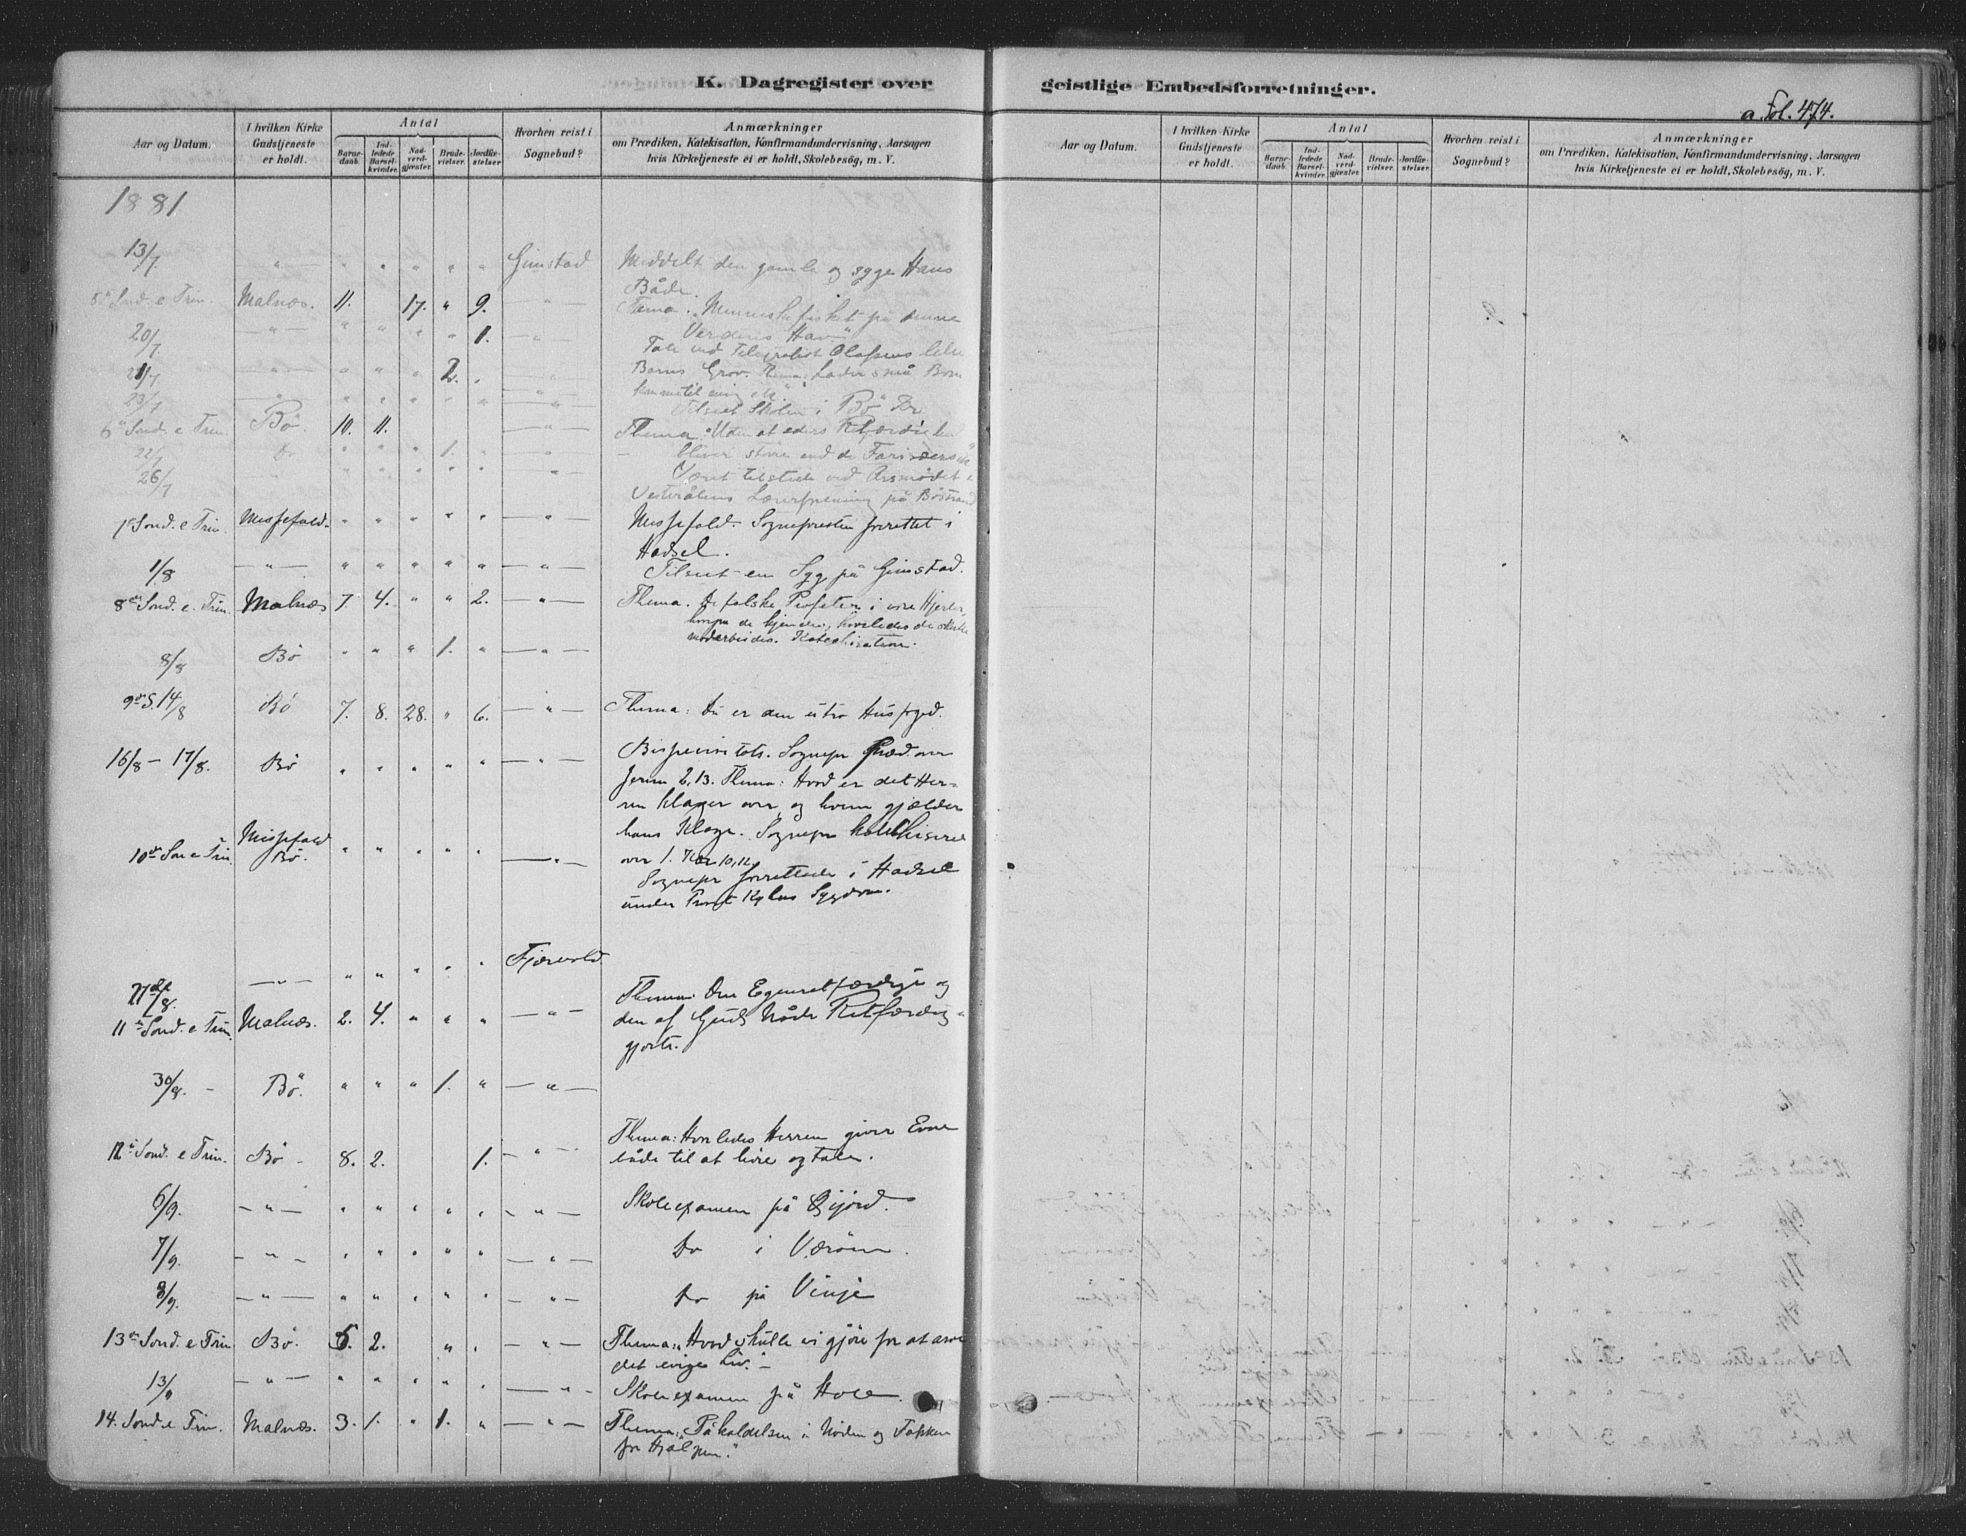 K. Dagregister over
geistlige Embedsforretninger.
a. Fol. 474.
Aar og Datum.
I hvilken Kirke Gudstjeneste er holdt.
Antal
Barnedaab.
Indledede Barselkvinder.
Nadverdgjester.
Brudevielser.
Jordfæstelser.
Hvorhen reist i Sognebud?
Anmærkninger
om Prædiken, Katekisation, Konfirmandundervisning, Aarsagen
hvis Kirketjeneste ei er holdt, Skolebesög, m. V.
Aar og Datum.
I hvilken Kirke Gudstjeneste er holdt.
Antal
Barnedaab.
Indledede Barselkvinder.
Nadverdgjester.
Brudevielser.
Jordfæstelser.
Hvorhen reist i Sognebud?
Anmærkninger
om Prædiken, Katekisation, Konfirmandundervisning, Aarsagen
hvis Kirketjeneste ei er holdt, Skolebesög, m. V.
1881
13/7. — " — " " " " " Gimstad Meddelt den gamle og syge Hans
Både.
5te Sond. e Trin. Malnæs. 11. 17. " 9. — " — Tema: Menneskefisket på denne
Verdens Hav"
20/7. — " — " " " " 1. — " — Tale ved Telegrafist Olafsens lille
21/7 " " " 2. " Barns Grav. Tema: Lader små Børn
komme til mig etc."
23/7 Tilseet Skolen i Bø
6te Sond. e Trin Bø. 10. 11. — " — Thema: Uden at eders Retfærdighed
22/7 Do " " " 1. " " bliver større end de Farisæers
26/7 " " " " " " Været tilstede ved Årsmødet i
Vesterålens Lærerforening på Bøstrand
7de Sond. e Trin. Messefald. " " " " " — " — Messefald. Sognepresten forrettet i
Hadsel.
1/8 — " — " " " " " — " — Tilseet en Syg på Gimstad.
8de Sond. e. Trin. Malnæs 7 4. " " 2. — " — Thema. De falske Profeter i vore Hjerter,
hvorpå de kjendes, hvorledes de skulle
modarbeides. Katechisation.
8/8 Bø " " " 1. " — " —
9de S. 14/8 Bø 7. 8. 28. " 6. — " — Thema: Du er den utro Husfoged.
16/8 – 17/8. Bø " " " " " — " — Bispevisitats. Sognepr præd over
Jerem 2,13. Thema: Hvad er det Her-
ren klager over og hvem gjælder
hans Klage. Sognepr katechiserer
over 1. Kor 10,12.
10de Son e Trin. Messefald Bø. " " " " " — " — Sognepr forrettede i Hadsel
under Provst Sygdom.
27de/8. — " — " " " " " Fjærvold.
11te Sond. e Trin. Malnæs. 2. 4. " " " — " — Thema: Den Egenretfærdige og
den af Guds Nåde Retfærdig-
gjorte.
30/8. - Bø. " " " 1. " — " —
12te Sond. e Trin. Bø - 8. 2. 1. — " — Thema: Hvorledes Herren giver Evne
både til at høre og tale.
6/9. — " — " " " " " — " — Skoleexamen på Gjjørd.
7/9. — " — " " " " " — " — Do i Værøen.
8/9. — " — " " " " " — " — Do på Vinje
13de Sond. e Trin Bø. 5. 2. " " — " — Thema: "Hvad skulle vi gjøre for at arve
det evige Liv." –
13/9 — " — " " " " " — " — Skoleexamen på Hove.
14. Sond. e Trin. Malnæs. 3. 1. " 1. " — " — Thema: "Påkaldelsen i Nøden og Takken
for Hjælpen."